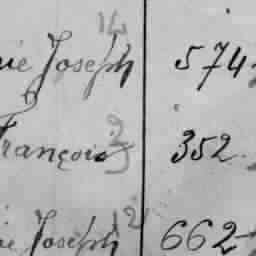 14
ie Joseph 574
2
François 352
12
ie Joseph 662